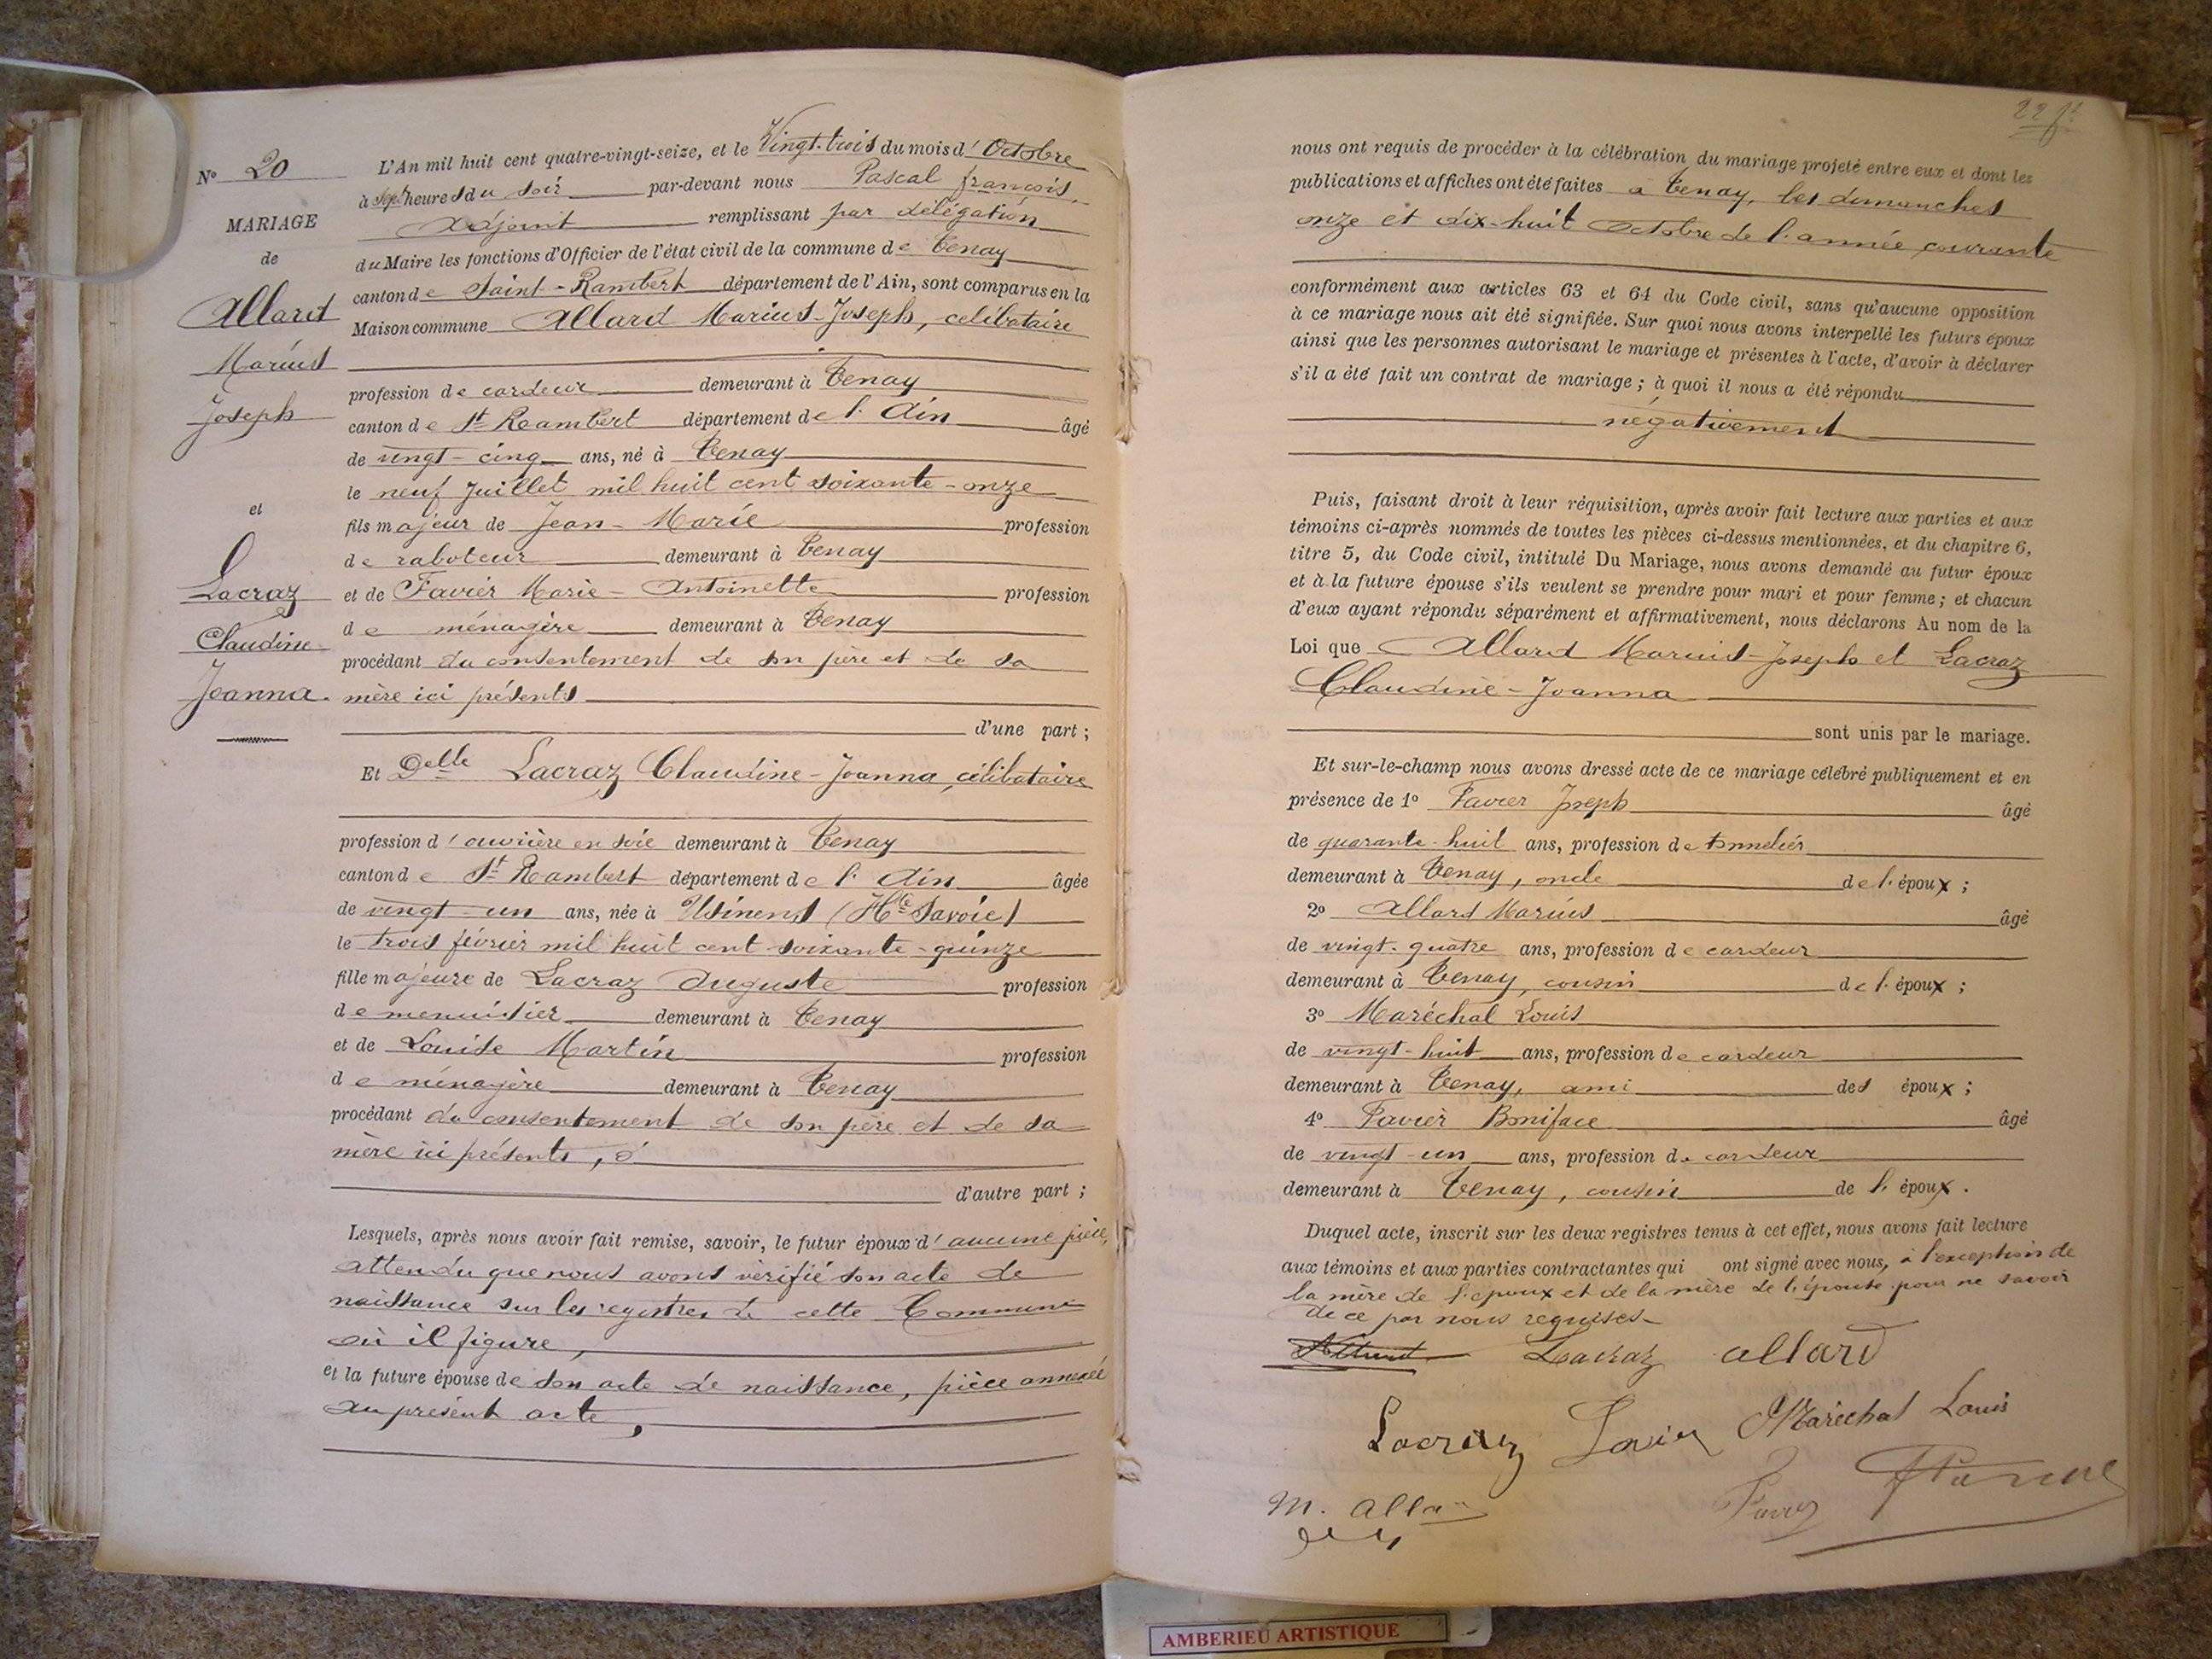 N° 20
MARIAGE
de
Allard
Marius
Joseph
et
Lacraz
Claudine
Joanna.
L'An mil huit cent quatre-vingt-seize, et le Vingt-trois du mois d'Octobre
à sept heures du soir par-devant nous Pascal françois,
Adjoint remplissant par délégation
du Maire les fonctions d'Officier de l'état civil de la commune de Tenay
canton de Saint-Rambert département de l'Ain, sont comparus en la
Maison commune Allard Marius-Joseph, célibataire
profession de cardeur demeurant à Tenay
canton de St Rambert département de l'Ain âgé
de vingt-cinq ans, né à Tenay
le neuf Juillet mil huit cent soixante-onze
fils majeur de Jean-Marie profession
de raboteur demeurant à Tenay
et de Favier Marie-Antoinette profession
de ménagère demeurant à Tenay
procédant du consentement de son père et de sa
mère ici présents
d'une part ;
Et Delle Lacraz Claudine-Joanna, célibataire
profession d'ouvrière en soie demeurant à Tenay
canton de St Rambert département de l'Ain âgée
de vingt-un ans, née à Usinens (Hte Savoie)
le trois février mil huit cent soixante-quinze
fille majeure de Lacraz Auguste profession
de menuisier demeurant à Tenay
et de Louise Martin profession
de ménagère demeurant à Tenay
procédant du consentement de son père et de sa
mère ici présents,
d'autre part ;
Lesquels, après nous avoir fait remise, savoir, le futur époux d'aucune pièce,
attendu que nous avons vérifié son acte de
naissance sur les registres de cette Commune
où il figure,
et la future épouse de son acte de naissance, pièce annexée
au présent acte,
nous ont requis de procéder à la célébration du mariage projeté entre eux et dont les
publications et affiches ont été faites à Tenay, les dimanches
onze et dix-huit Octobre de l'année courante
conformément aux articles 63 et 64 du Code civil, sans qu'aucune opposition
à ce mariage nous ait été signifiée. Sur quoi nous avons interpellé les futurs époux
ainsi que les personnes autorisant le mariage et présentes à l'acte, d'avoir à déclarer
s'il a été fait un contrat de mariage ; à quoi il nous a été répondu
négativement
Puis, faisant droit à leur réquisition, après avoir fait lecture aux parties et aux
témoins ci-après nommés de toutes les pièces ci-dessus mentionnées, et du chapitre 6,
titre 5, du Code civil, intitulé Du Mariage, nous avons demandé au futur époux
et à la future épouse s'ils veulent se prendre pour mari et pour femme ; et chacun
d'eux ayant répondu séparément et affirmativement, nous déclarons Au nom de la
Loi que Allard Marius-Joseph et Lacraz
Claudine-Joanna
sont unis par le mariage.
Et sur-le-champ nous avons dressé acte de ce mariage célébré publiquement et en
présence de 1° Favier Joseph âgé
de quarante-huit ans, profession de tonnelier
demeurant à Tenay, oncle de l'époux ;
2° Allard Marius âgé
de vingt-quatre ans, profession de cardeur
demeurant à Tenay, cousin de l'époux ;
3° Maréchal Louis
de vingt-huit ans, profession de cardeur
demeurant à Tenay, ami des époux ;
4° Favier Boniface âgé
de vingt-un ans, profession de cardeur
demeurant à Tenay, cousin de l'époux.
Duquel acte, inscrit sur les deux registres tenus à cet effet, nous avons fait lecture
aux témoins et aux parties contractantes qui ont signé avec nous, à l'exception de
la mère de l'époux et de la mère de l'épouse pour ne savoir
de ce par nous requises
Lacraz allard
Lacraz Favier Maréchal Louis
M. Alla
AMBERIEU ARTISTIQUE